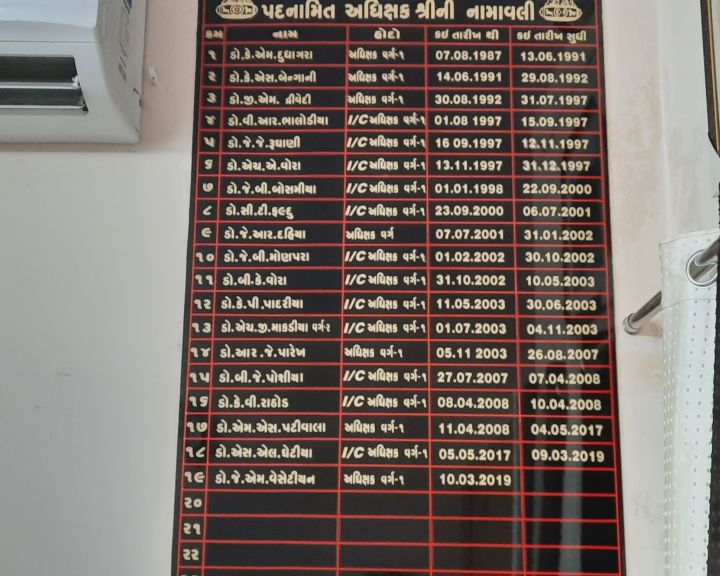 પદનામિત અધિક્ષક શ્રીની નામાવલી
ક્રમ નામ હોદો કઈ તારીખ થી કઈ તારીખ સુધી
૧ ડો.કે.એમ.દુધાગરા અધિક્ષક વર્ગ-૧ 07.08.1987 13.06.1991
૨ ડો.કે.એસ.બેન્ગાની અધિક્ષક વર્ગ-૧ 14.06.1991 29.08.1992
૩ ડો.જી.એમ. દ્રીવેદી અધિક્ષક વર્ગ-૧ 30.08.1992 31.07.1997
૪ ડો.વી.આર.ભાલોડીયા I/C અધિક્ષક વર્ગ-૧ 01.08 1997 15.09.1997
૫ ડો.જે.જે.રૂઘાણી I/C અધિક્ષક વર્ગ-૧ 16 09.1997 12.11.1997
૬ ડો.એચ.એ.વોરા I/C અધિક્ષક વર્ગ-૧ 13.11.1997 31.12.1997
૭ ડો.જે.બી.બોસમીયા I/C અધિક્ષક વર્ગ-૧ 01.01.1998 22.09.2000
૮ ડો.સી.ટી.ફલ્દુ I/C અધિક્ષક વર્ગ-૧ 23.09.2000 06.07.2001
૯ ડો.જે.આર.દહિયા અધિક્ષક વર્ગ 07.07.2001 31.01.2002
૧૦ ડો.જે.બી.મોણપરા I/C અધિક્ષક વર્ગ-૧ 01.02.2002 30.10.2002
૧૧ ડો.બી.કે.વોરા I/C અધિક્ષક વર્ગ-૧ 31.10.2002 10.05.2003
૧૨ ડો.કે.પી.પાદરીયા I/C અધિક્ષક વર્ગ-૧ 11.05.2003 30.06.2003
૧૩ ડો.એચ.જી.માકડીયા વર્ગ-૨ I/C અધિક્ષક વર્ગ-૧ 01.07.2003 04.11.2003
૧૪ ડો.આર .જે.પારેખ અધિક્ષક વર્ગ-૧ 05.11 2003 26.08.2007
૧૫ ડો.બી.જે.પોશીયા I/C અધિક્ષક વર્ગ-૧ 27.07.2007 07.04.2008
૧૬ ડો.કે.વી.રાઠોડ I/C અધિક્ષક વર્ગ-૧ 08.04.2008 10.04.2008
૧૭ ડો.એમ.એસ.પટીવાલા અધિક્ષક વર્ગ-૧ 11.04.2008 04.05.2017
૧૮ ડો.એસ.એલ.ઘેટીયા I/C અધિક્ષક વર્ગ-૧ 05.05.2017 09.03.2019
૧૯ ડો.જે.એમ.વેસેટીયન અધિક્ષક વર્ગ-૧ 10.03.2019
૨૦
૨૧
૨૨